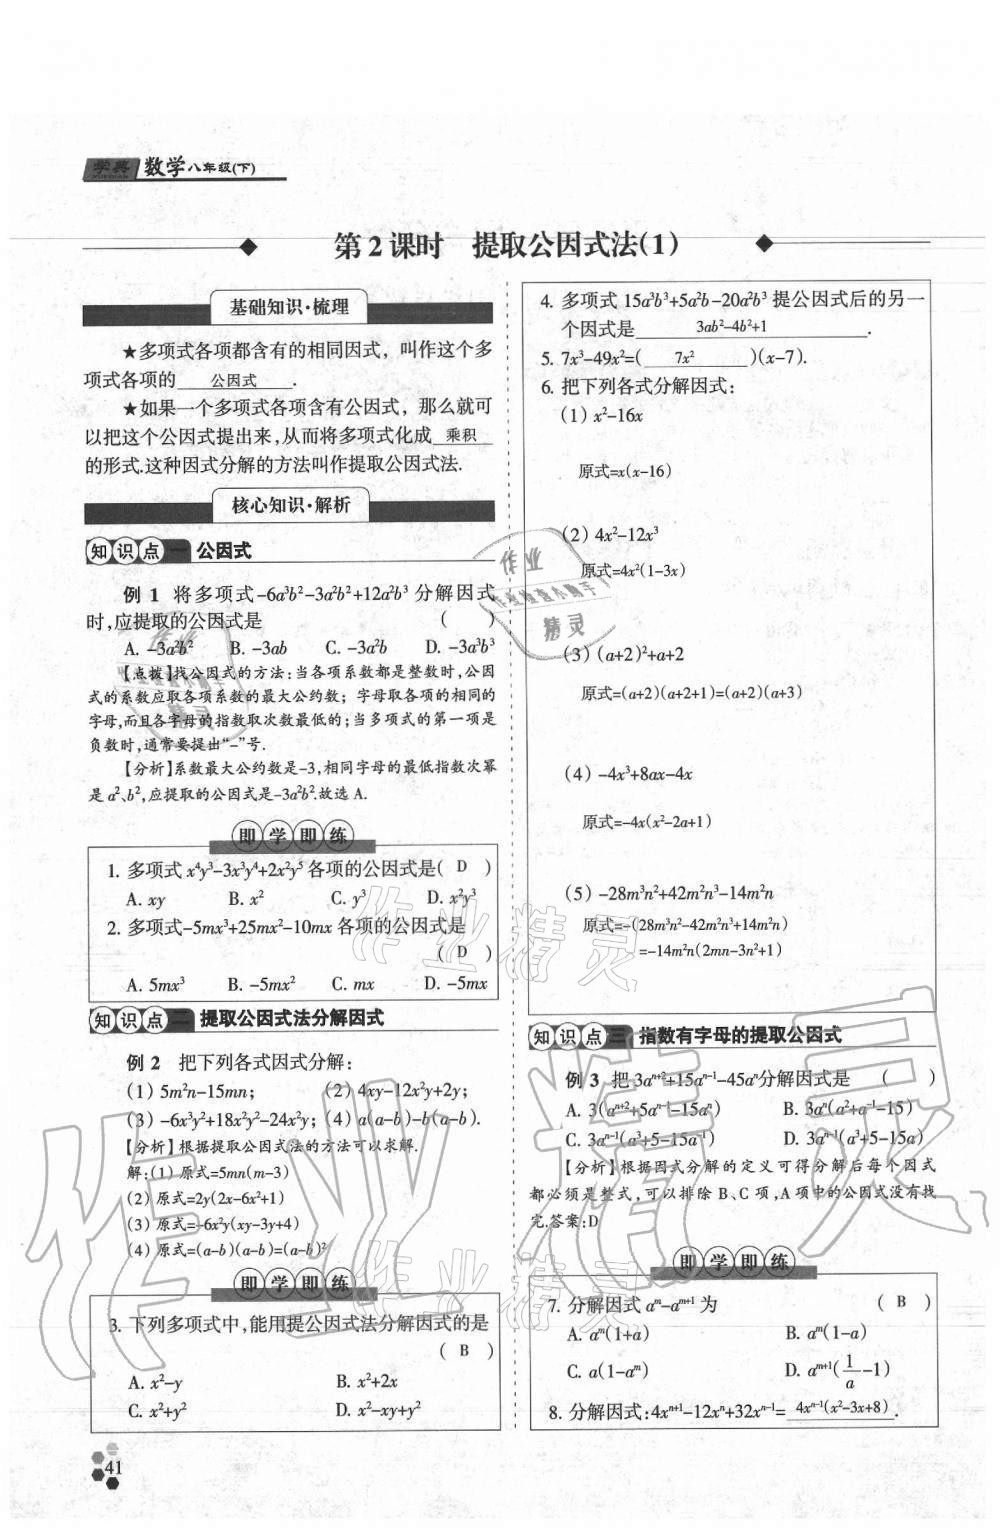 学典 数学八年级(下)
XUEDIAN
第2课时 提取公因式法(1)
基础知识·梳理
★多项式各项都含有的相同因式，叫作这个多
项式各项的 公因式 .
★如果一个多项式各项含有公因式，那么就可
以把这个公因式提出来,从而将多项式化成 乘积
的形式.这种因式分解的方法叫作提取公因式法.
核心知识·解析
知识点一 公因式
例 1 将多项式-6a³b²-3a²b²+12a²b³分解因式
时,应提取的公因式是 ( )
A. -3a²b² B. -3ab C. -3a²b D. -3a³b³
【点拨】找公因式的方法:当各项系数都是整数时,公因
式的系数应取各项系数的最大公约数；字母取各项的相同的
字母,而且各字母的指数取次数最低的;当多项式的第一项是
负数时,通常要提出“-”号.
【分析】系数最大公约数是-3,相同字母的最低指数次幂
是a²、b²,应提取的公因式是-3a²b².故选A.
即学即练
1. 多项式x⁴y³-3x³y⁴+2x²y⁵各项的公因式是( D )
A. xy B. x² C. y³ D. x²y³
2. 多项式-5mx³+25mx²-10mx各项的公因式是
( D )
A. 5mx³ B. -5mx² C. mx D. -5mx
知识点二 提取公因式法分解因式
例 2 把下列各式因式分解：
(1) 5m²n-15mn; (2) 4xy-12x²y+2y;
(3) -6x³y²+18x²y²-24x²y; (4) a(a-b)-b(a-b).
【分析】根据提取公因式法的方法可以求解.
解:(1) 原式=5mn(m-3)
(2) 原式=2y(2x-6x²+1)
(3) 原式=-6x²y(xy-3y+4)
(4) 原式=(a-b)(a-b)=(a-b)²
即学即练
3. 下列多项式中,能用提公因式法分解因式的是
( B )
A. x²-y B. x²+2x
C. x²+y² D. x²-xy+y²
41
4. 多项式15a³b³+5a²b-20a²b³提公因式后的另一
个因式是 3ab²-4b²+1 .
5. 7x³-49x²=( 7x² )(x-7).
6. 把下列各式分解因式：
(1) x²-16x
原式=x(x-16)
(2) 4x²-12x³
原式=4x²(1-3x)
(3) (a+2)²+a+2
原式=(a+2)(a+2+1)=(a+2)(a+3)
(4) -4x³+8ax-4x
原式=-4x(x²-2a+1)
(5) -28m³n²+42m²n³-14m²n
原式=-(28m³n²-42m²n³+14m²n)
=-14m²n(2mn-3n²+1)
知识点三 指数有字母的提取公因式
例 3 把3aⁿ⁺²+15aⁿ⁻¹-45aⁿ分解因式是 ( )
A. 3(aⁿ⁺²+5aⁿ⁻¹-15aⁿ) B. 3aⁿ(a²+a⁻¹-15)
C. 3aⁿ⁻¹(a³+5-15a⁻¹) D. 3aⁿ⁻¹(a³+5-15a)
【分析】根据因式分解的定义可得分解后每个因式
都必须是整式,可以排除B、C项,A项中的公因式没有找
完.答案:D
即学即练
7. 分解因式aᵐ-aᵐ⁺¹为 ( B )
A. aᵐ(1+a) B. aᵐ(1-a)
C. a(1-aᵐ) D. aᵐ⁺¹(1/a-1)
8. 分解因式:4xⁿ⁺¹-12xⁿ+32xⁿ⁻¹= 4xⁿ⁻¹(x²-3x+8) .
作业精灵
作业精灵
作业精灵